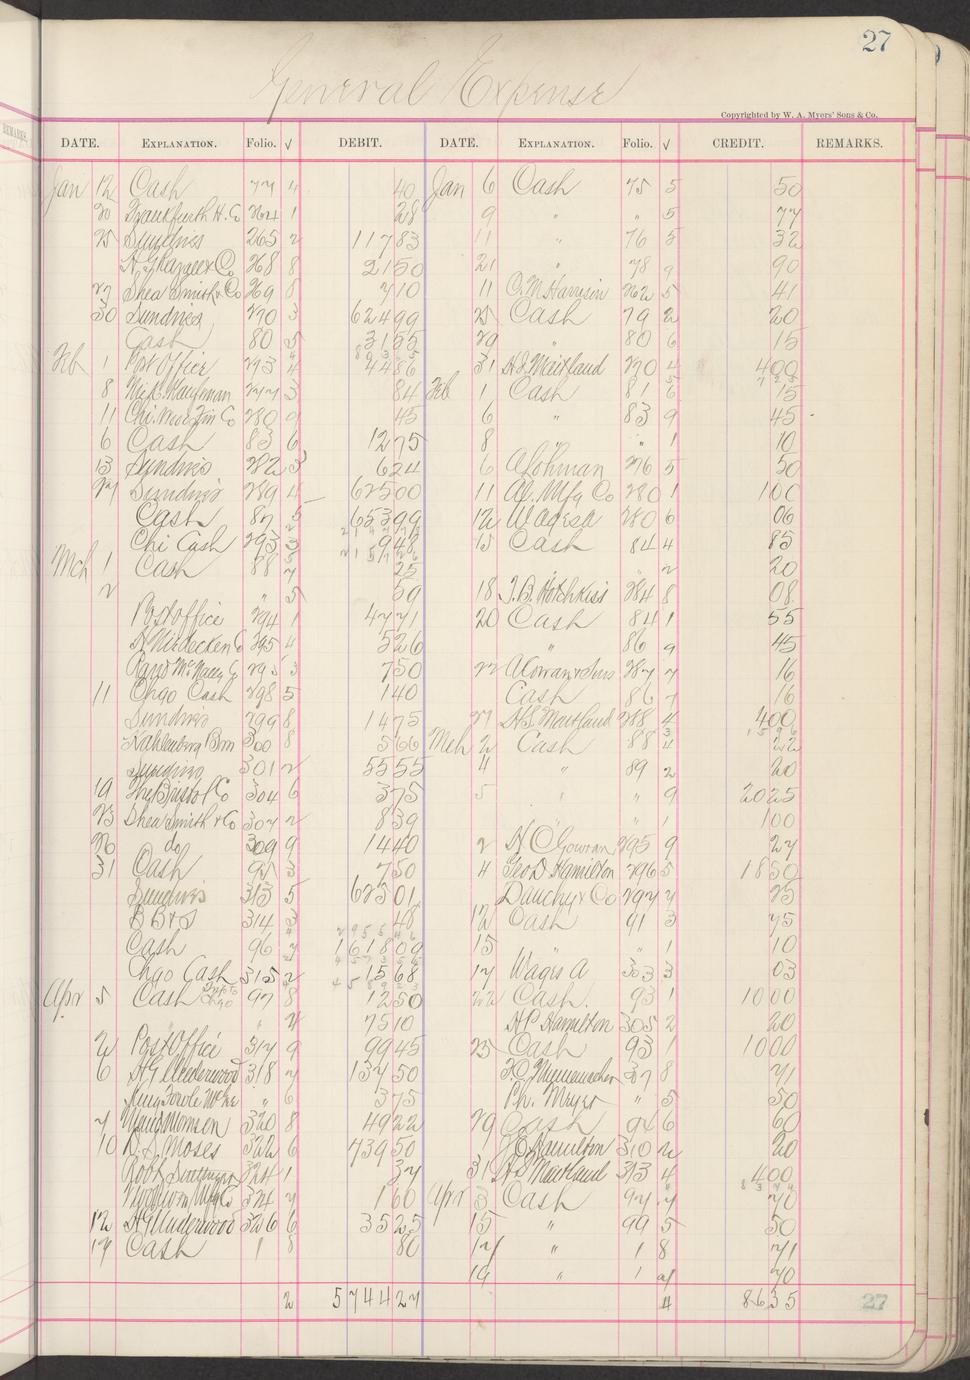 27
General Expense
Copyrighted by W. A. Myers' Sons & Co.
DATE. EXPLANATION. Folio. √ DEBIT. DATE. EXPLANATION. Folio. √ CREDIT. REMARKS.
Jan 12 Cash 77 4 40 Jan 6 Cash 75 5 50
20 Frankfurth H. Co 264 1 28 9 " " 5 77
25 Sundries 265 2 117 83 11 " 76 5 32
Co 268 8 21 50 21 " 78 9 90
27 Shea Smith & Co 269 8 7 10 11 O. M. Harrison 262 5 41
30 Sundries 270 3 624 99 25 Cash 79 2 20
Cash 80 5 31 55 29 " 80 6 15
Feb 1 Post Office 273 4 44 86 31 H. S. Maitland 270 4 4 00
8 Kaufman 277 3 84 Feb 1 Cash 81 6 15
11 Co 280 9 45 6 " 83 9 45
6 Cash 83 6 12 75 8 " " 1 10
13 Sundries 282 3 6 24 6 A Lohman 276 5 50
27 Sundries 289 4 625 00 11 Mfg Co 280 1 1 00
Cash 87 5 653 99 12 Wages A 280 6 06
Chi Cash 293 3 9 48 15 Cash 84 4 85
Mch 1 Cash 88 7 25 " " 2 20
2 " " 5 50 18 J. B. Hotchkiss 284 8 08
Post office 294 1 47 71 20 Cash 84 1 55
Co 295 4 5 26 " 86 9 45
Rand McNally Co 295 3 7 50 22 A Cowan & Sons 287 7 16
11 Chgo Cash 298 5 1 40 Cash 86 7 16
Sundries 299 8 14 75 27 H. S. Maitland 288 4 4 00
Kahlenberg Bros 300 8 5 66 Mch 2 Cash 88 4 22
Sundries 301 2 55 55 4 " 89 2 20
19 The Bristol Co 304 6 3 75 5 " " 9 20 25
23 Shea Smith & Co 307 2 8 39 " " 1 1 00
26 do 309 9 14 40 2 H C Gowran 295 9 27
31 Cash 95 3 7 50 4 Geo D Hamilton 296 5 18 50
Sundries 313 5 625 01 Dauchy & Co 297 7 25
B B & S 314 3 48 12 Cash 91 3 75
Cash 96 7 1618 09 15 " " 1 10
Chgo Cash 315 2 15 68 17 Wages A 303 3 03
Apr 5 Cash 97 8 12 50 22 Cash 93 1 10 00
" " 4 75 10 H P Hamilton 305 2 20
2 Post Office 317 9 99 45 25 Cash 93 1 10 00
6 H G Underwood 318 7 137 50 307 8 71
" 6 3 75 Ph. Meyer " 5 50
7 320 8 49 22 29 Cash 94 6 60
10 D. S. Moses 322 6 739 50 Hamilton 310 2 20
324 1 37 31 H S Maitland 313 4 4 00
324 7 1 60 Apr 3 Cash 97 7 70
12 H G Underwood 326 6 35 25 15 " 99 5 50
17 Cash 1 8 80 17 " 1 8 71
19 " 1 9 70
2 5744 27 4 86 35 27